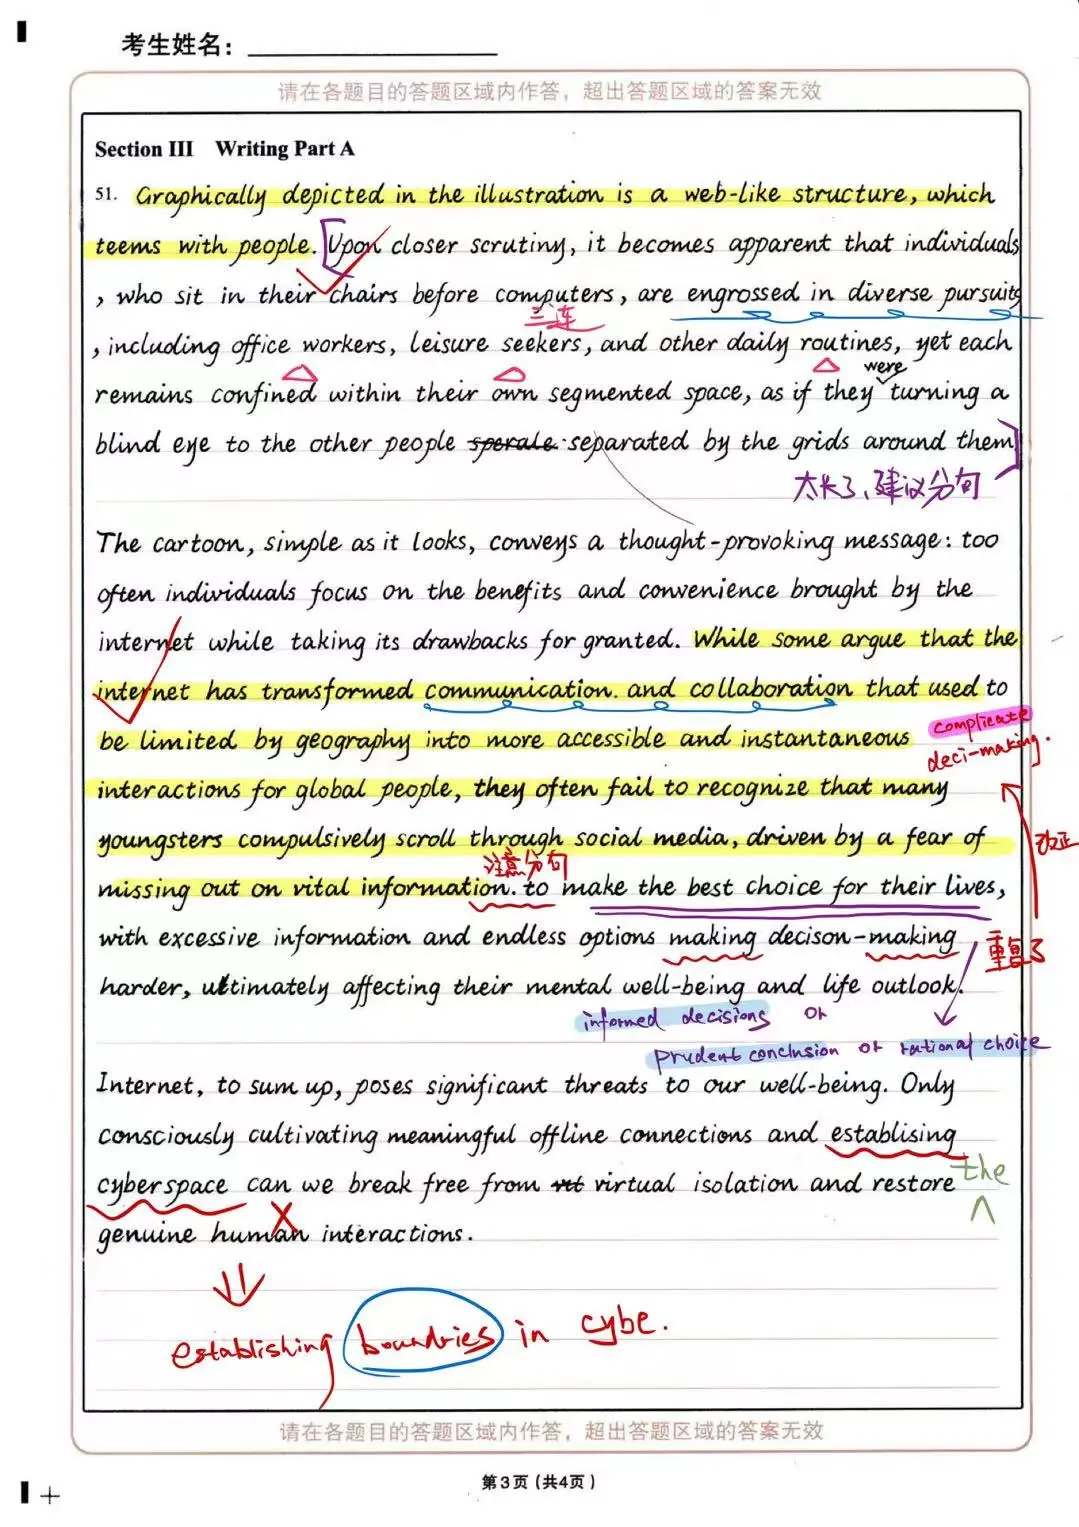 考生姓名：
请在各题目的答题区域内作答，超出答题区域的答案无效
Section III Writing Part A
51. Graphically depicted in the illustration is a web-like structure, which
teems with people. Upon closer scrutiny, it becomes apparent that individuals
, who sit in their chairs before computers, are engrossed in diverse pursuits
三连
, including office workers, leisure seekers, and other daily routines, yet each
were
remains confined within their own segmented space, as if they turning a
blind eye to the other people sperale separated by the grids around them
太长了、建议分句
The cartoon, simple as it looks, conveys a thought-provoking message: too
often individuals focus on the benefits and convenience brought by the
internet while taking its drawbacks for granted. While some argue that the
internet has transformed communication. and collaboration that used to
complicate
be limited by geography into more accessible and instantaneous
deci-making.
interactions for global people, they often fail to recognize that many
youngsters compulsively scroll through social media, driven by a fear of
改正
注意分句
missing out on vital information. to make the best choice for their lives,
with excessive information and endless options making decison-making
重复了
harder, ultimately affecting their mental well-being and life outlook.
informed decisions or
prudent conclusion or rational choice
Internet, to sum up, poses significant threats to our well-being. Only
consciously cultivating meaningful offline connections and establising
the
cyberspace can we break free from virtual isolation and restore
genuine human interactions.
establishing boundries in cybe.
请在各题目的答题区域内作答，超出答题区域的答案无效
第3页(共4页)